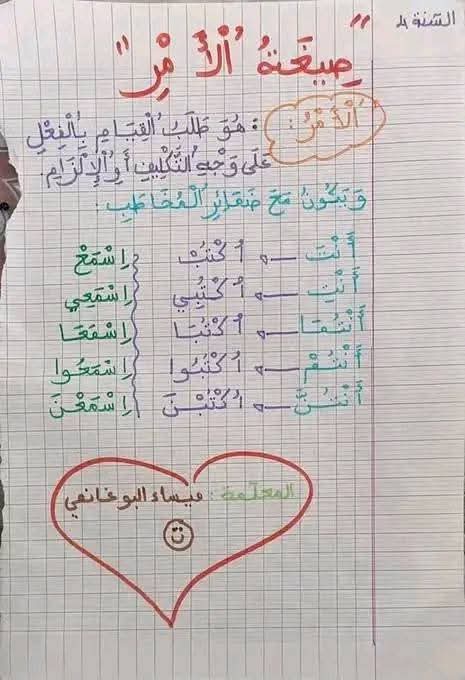 السنة 4
" صِيغَةُ الْأَمْرِ "
الْأَمْرُ : هُوَ طَلَبُ الْقِيَامِ بِالْفِعْلِ
عَلَى وَجْهِ التَّكْلِيفِ أَوِ الْإِلْزَامِ.
وَيَكُونُ مَعَ ضَمَائِرِ الْمُخَاطَبِ :
أَنْتَ ← اُكْتُبْ اِسْمَعْ
أَنْتِ ← اُكْتُبِي اِسْمَعِي
أَنْتُمَا ← اُكْتُبَا اِسْمَعَا
أَنْتُمْ ← اُكْتُبُوا اِسْمَعُوا
أَنْتُنَّ ← اُكْتُبْنَ اِسْمَعْنَ
المعلّمة : ميساء البوغانمي